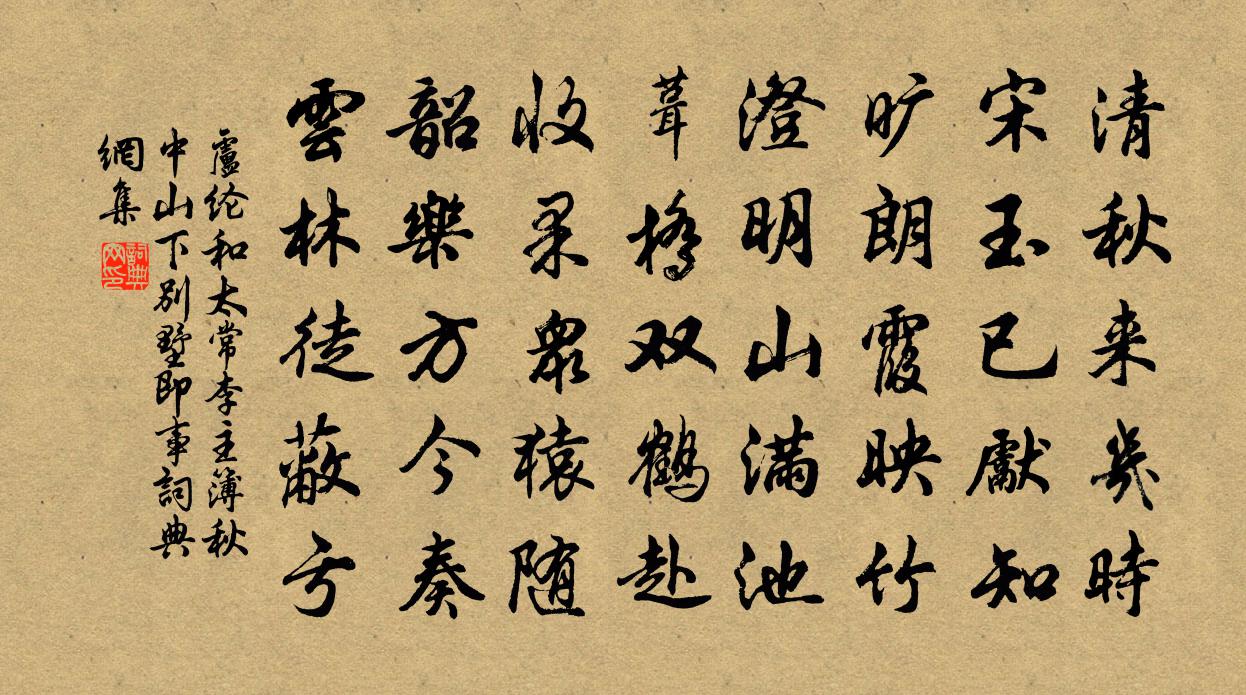 清秋来幾時
宋玉已獻知
旷朗霞映竹
澄明山满池
葺橋双鹤赴
收果眾猿随
韶樂方今奏
雲林徒蔽亏
盧纶和太常李主簿秋
中山下别墅即事詞典
網集
詞典
网印